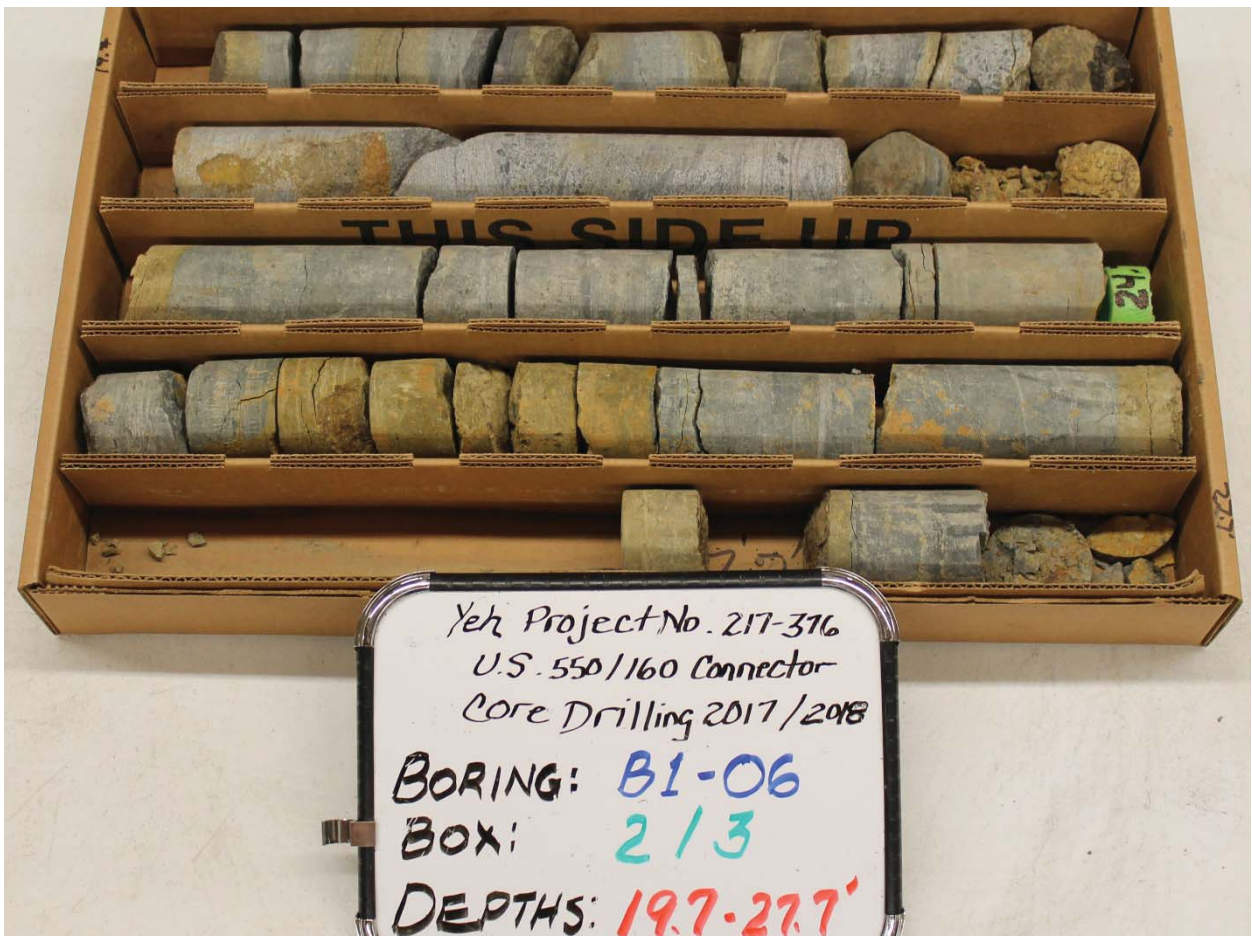 19.7
THIS SIDE UP
24
27.7
Yeh Project No. 217-376
U.S. 550/160 Connector
Core Drilling 2017/2018
BORING: B1-06
BOX: 2/3
DEPTHS: 19.7-27.7'